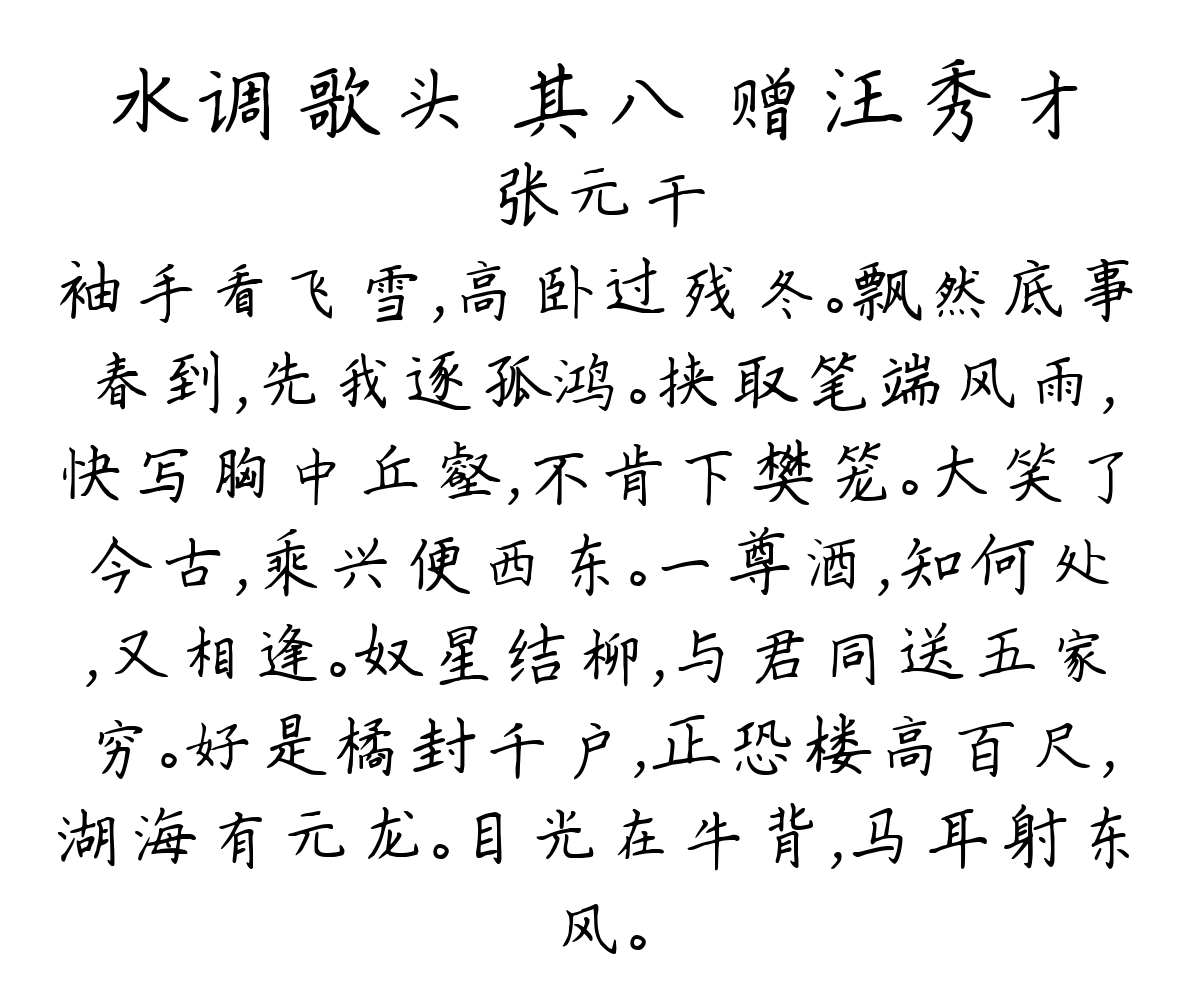 水调歌头 其八 赠汪秀才
张元干
袖手看飞雪,高卧过残冬。飘然底事
春到,先我逐孤鸿。挟取笔端风雨,
快写胸中丘壑,不肯下樊笼。大笑了
今古,乘兴便西东。一尊酒,知何处
,又相逢。奴星结柳,与君同送五家
穷。好是橘封千户,正恐楼高百尺,
湖海有元龙。目光在牛背,马耳射东
风。